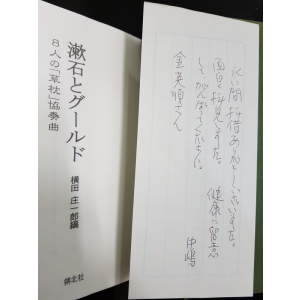 漱石とグールド
8人の「草枕」協奏曲
横田庄一郎編
朔北社
永い間拝借ありがとうございました。
面白く拝見しました。
健康に留意
して、がんばってください。
中嶋
金英順さん